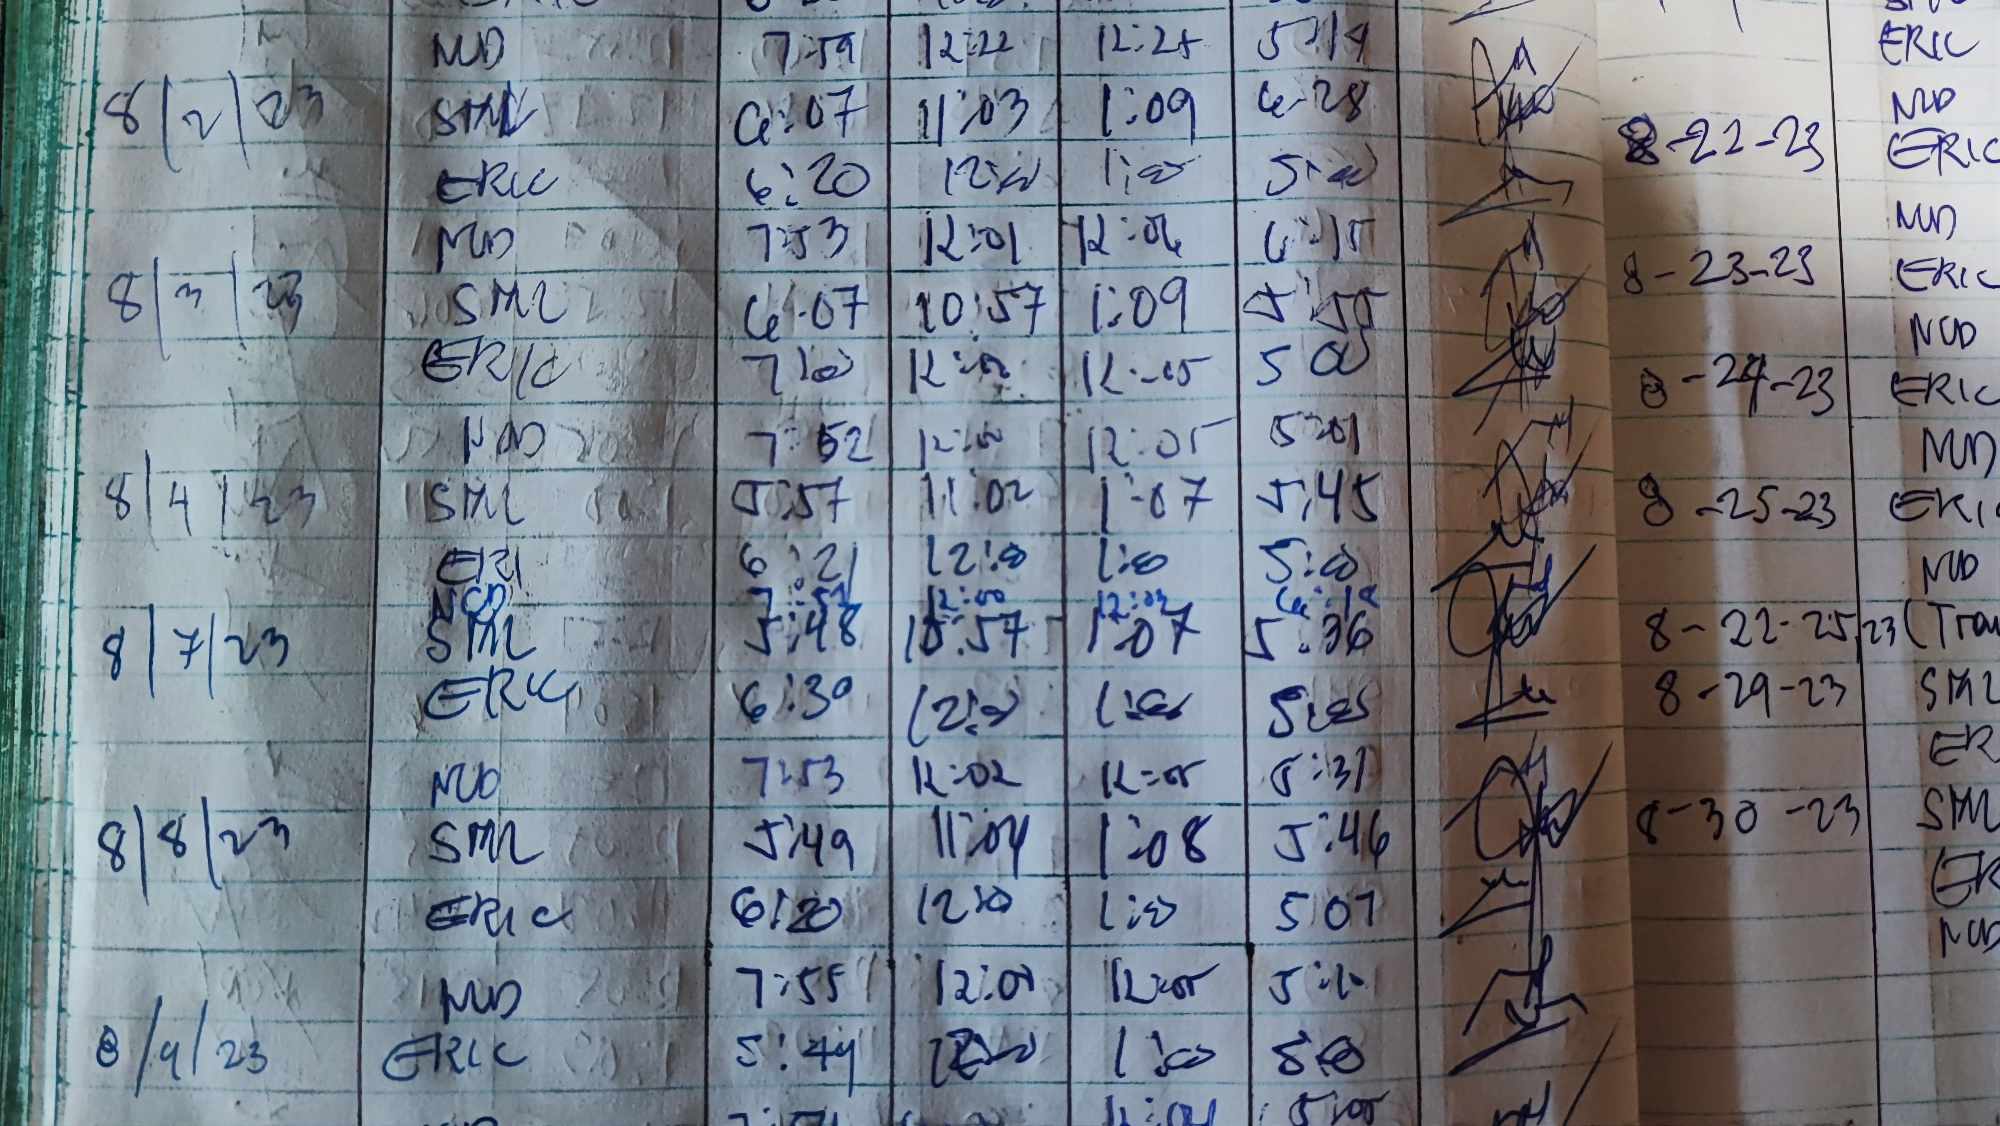 NUD 7:59 12:22 12:25 5:19
8/2/23 SML 6:07 11:03 1:09 6:28
ERIC 6:20 12:00 1:00 5:00
NUD 7:53 12:01 12:06 6:15
8/3/23 SML 6:07 10:57 1:09 5:55
ERIC 7:00 12:00 12:05 5 00
NUD 7:52 12:00 12:05 5:01
8/4/23 SML 5:57 11:02 1:07 5:45
ERI 6:21 12:00 1:00 5:00
NUD 12:00 12:03
8/7/23 SML 5:48 10:57 1:07 5:36
ERIC 6:30 12:00 1:00 5:05
NUD 7:53 12:02 12:05 5:31
8/8/23 SML 5:49 11:04 1:08 5:46
ERIC 6:20 12:00 1:00 5 07
NUD 7:55 12:05
8/9/23 ERIC 5:49 1:00
5:05
ERIC
NUD
8-22-23 ERIC
NUD
8-23-23 ERIC
NUD
8-24-23 ERIC
NUD
8-25-23 ERIC
NUD
8-22-25,23 (Tra
8-29-23 SML
ER
8-30-23 SML
ER
NUD